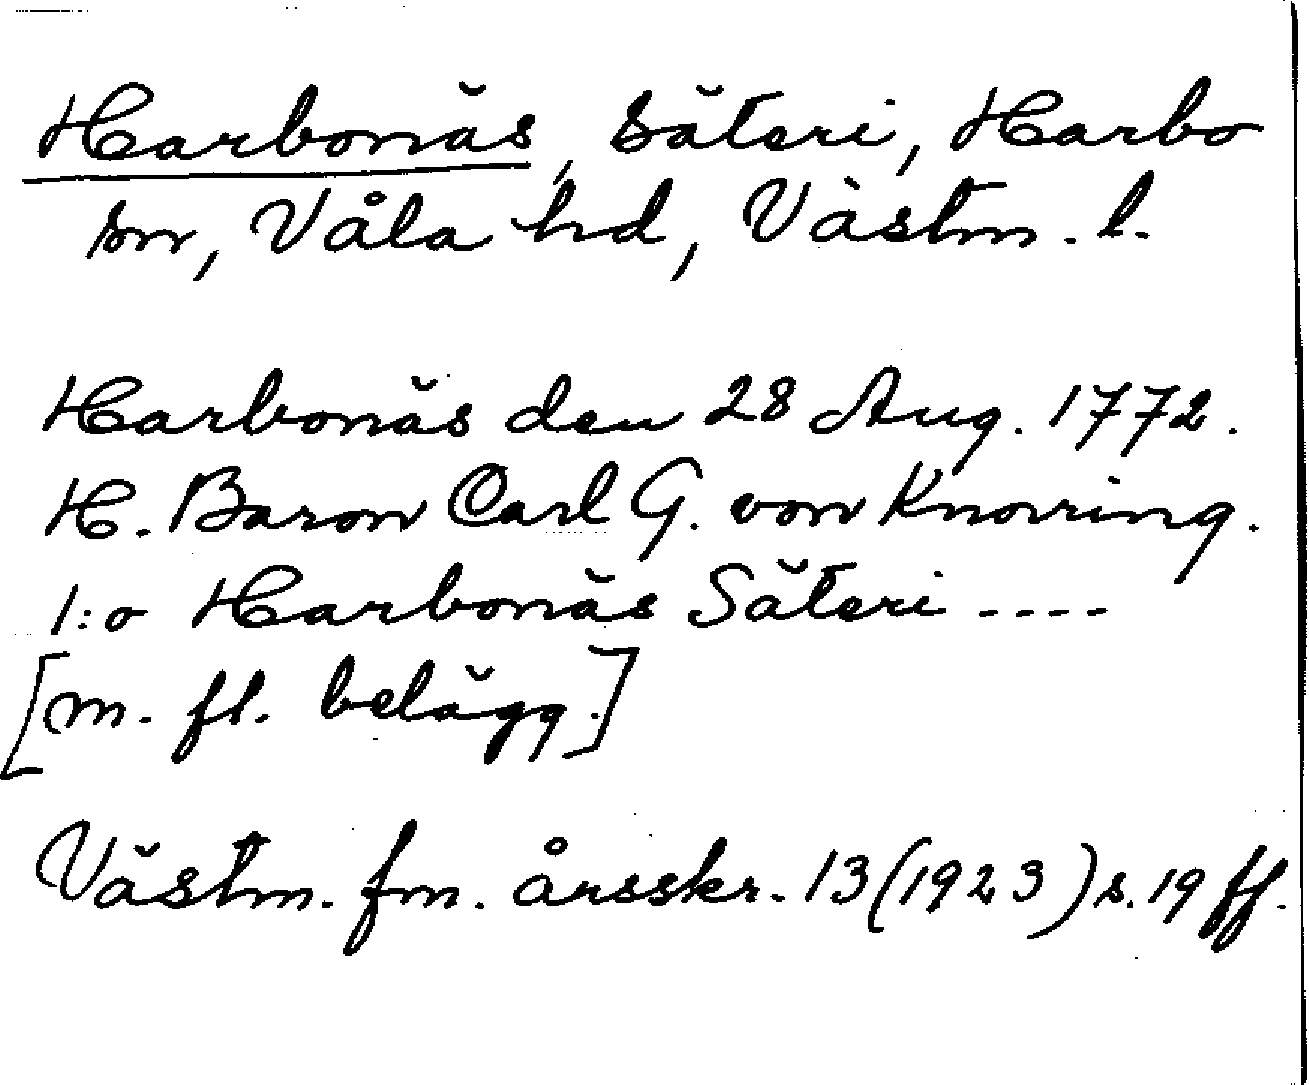 Harbonäs, säteri, Harbo
sn, Våla hd, Västm. l.
Harbonäs den 28 Aug. 1772.
H. Baron Carl G. von Knorring.
1:o Harbonäs Säteri ----
[m. fl. belägg.]
Västm. fm. årsskr. 13 (1923) s. 19 ff.